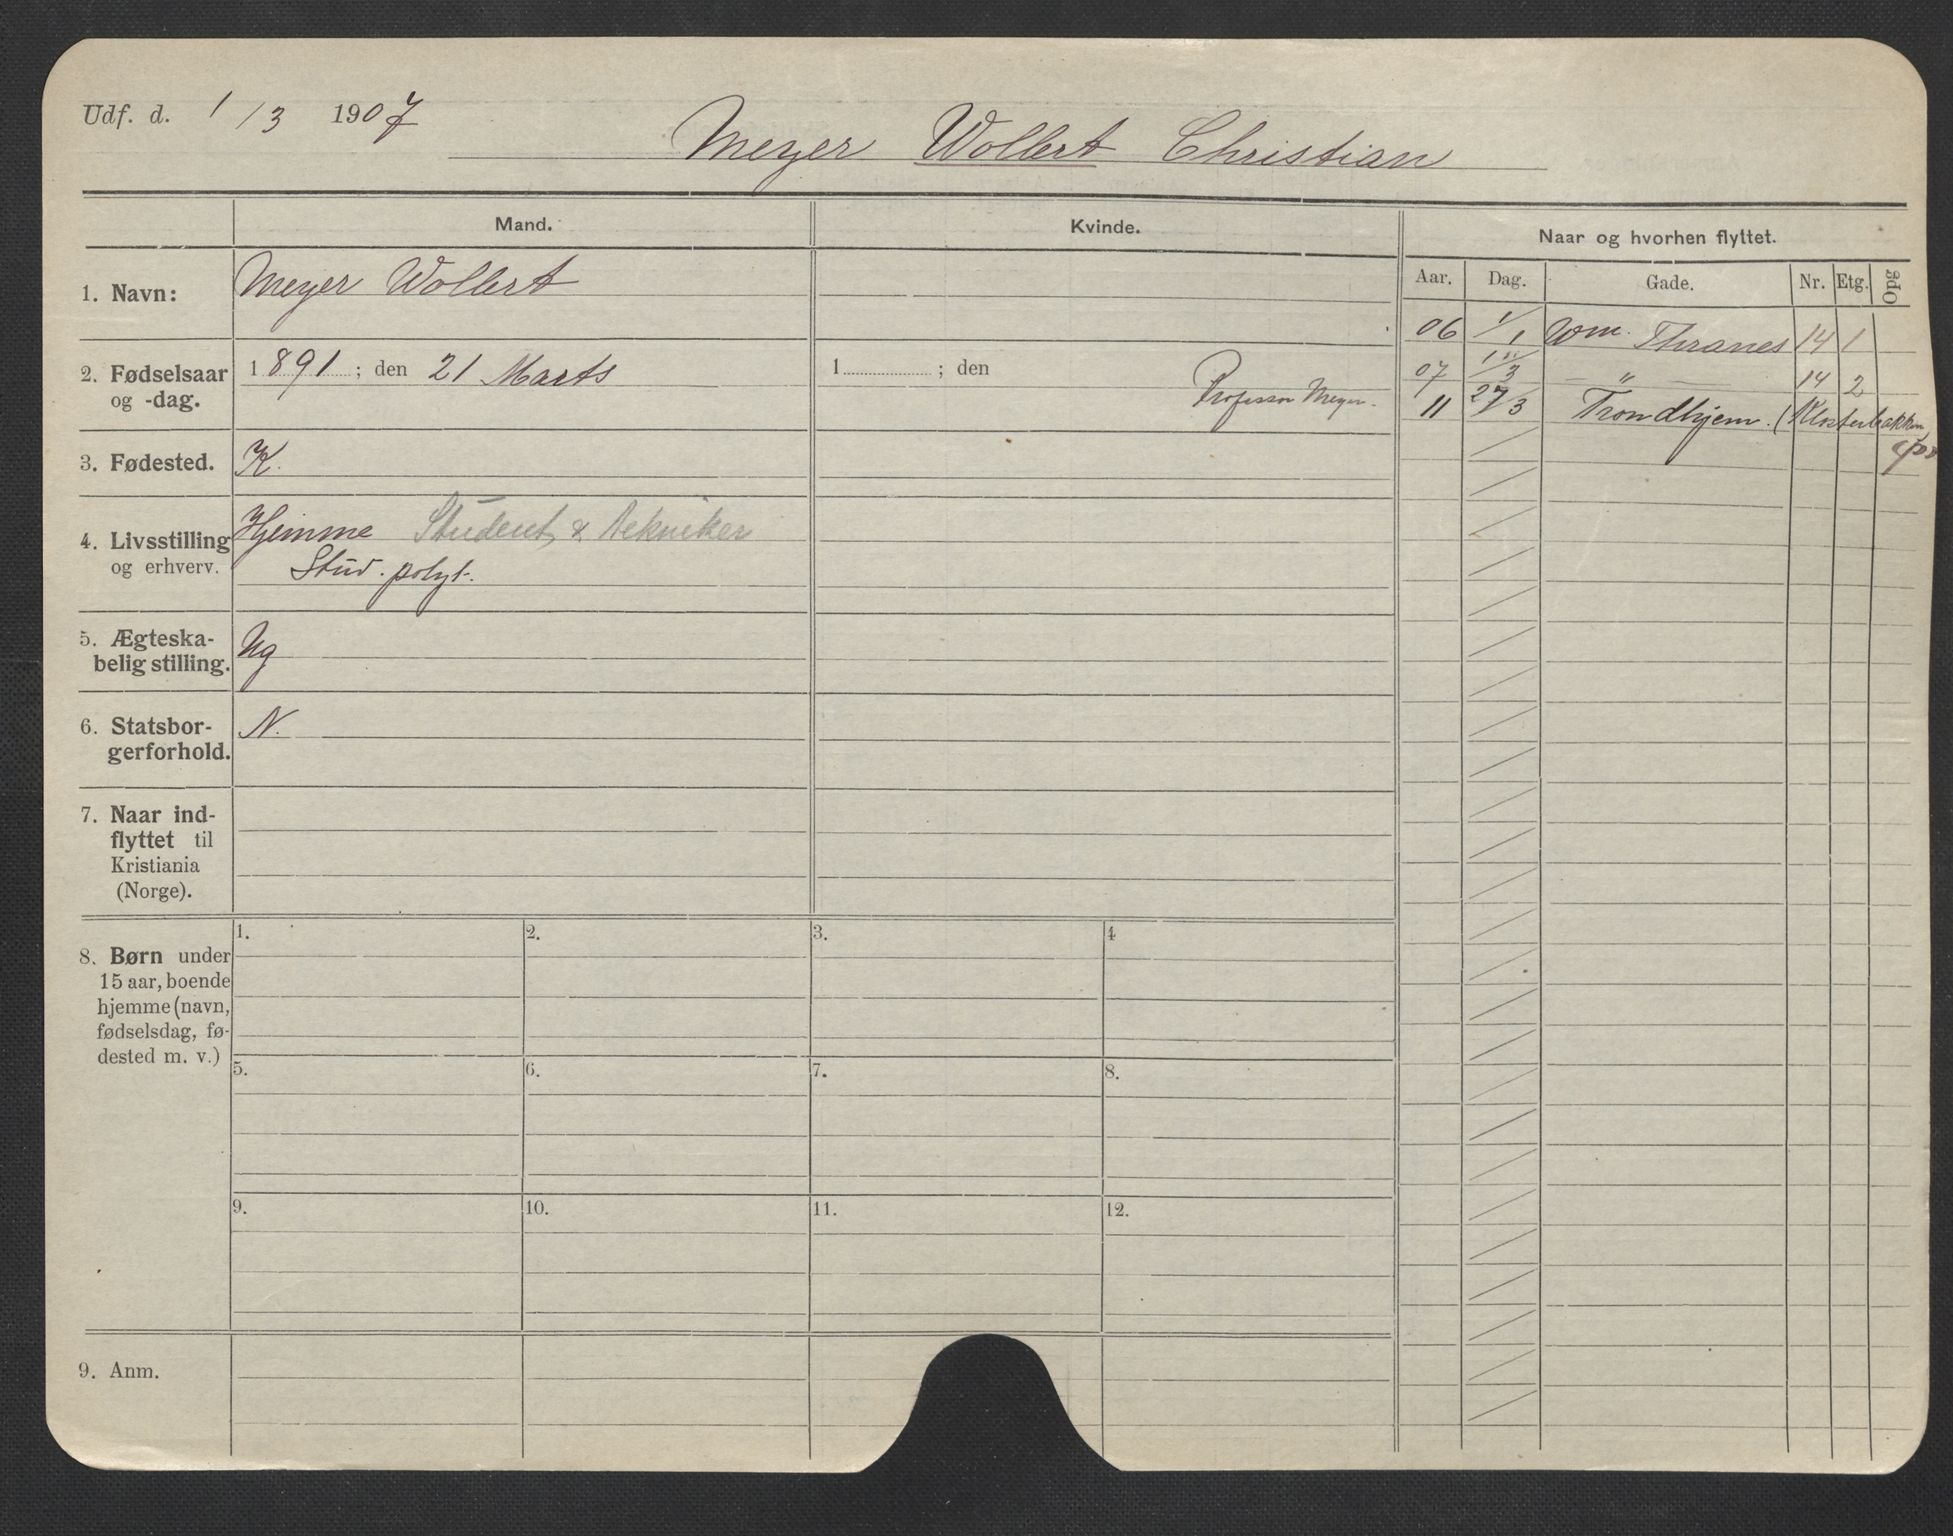 Udf. d. 1/3 1907
Meyer Wollert Christian
Mand.
Kvinde.
Naar og hvorhen flyttet.
Aar. Dag. Gade. Nr. Etg. Opg
1. Navn: Meyer Wollert
06 1/1 Wm. Thranes 14 1
2. Fødselsaar og -dag. 1891; den 21 Marts
1 ; den
Professor Meyer.
07 1/3 " 14 2
11 27/3 Trondhjem. (Klosterbakken
3. Fødested. K.
4. Livsstilling og erhverv. Hjemme Student & tekniker
Stud. polyt.
5. Ægteska-
belig stilling. Ug
6. Statsbor-
gerforhold. N.
7. Naar ind-
flyttet til
Kristiania
(Norge).
8. Børn under
15 aar, boende
hjemme (navn,
fødselsdag, fø-
dested m. v.)
1. 2. 3. 4
5. 6. 7. 8.
9. 10. 11. 12.
9. Anm.